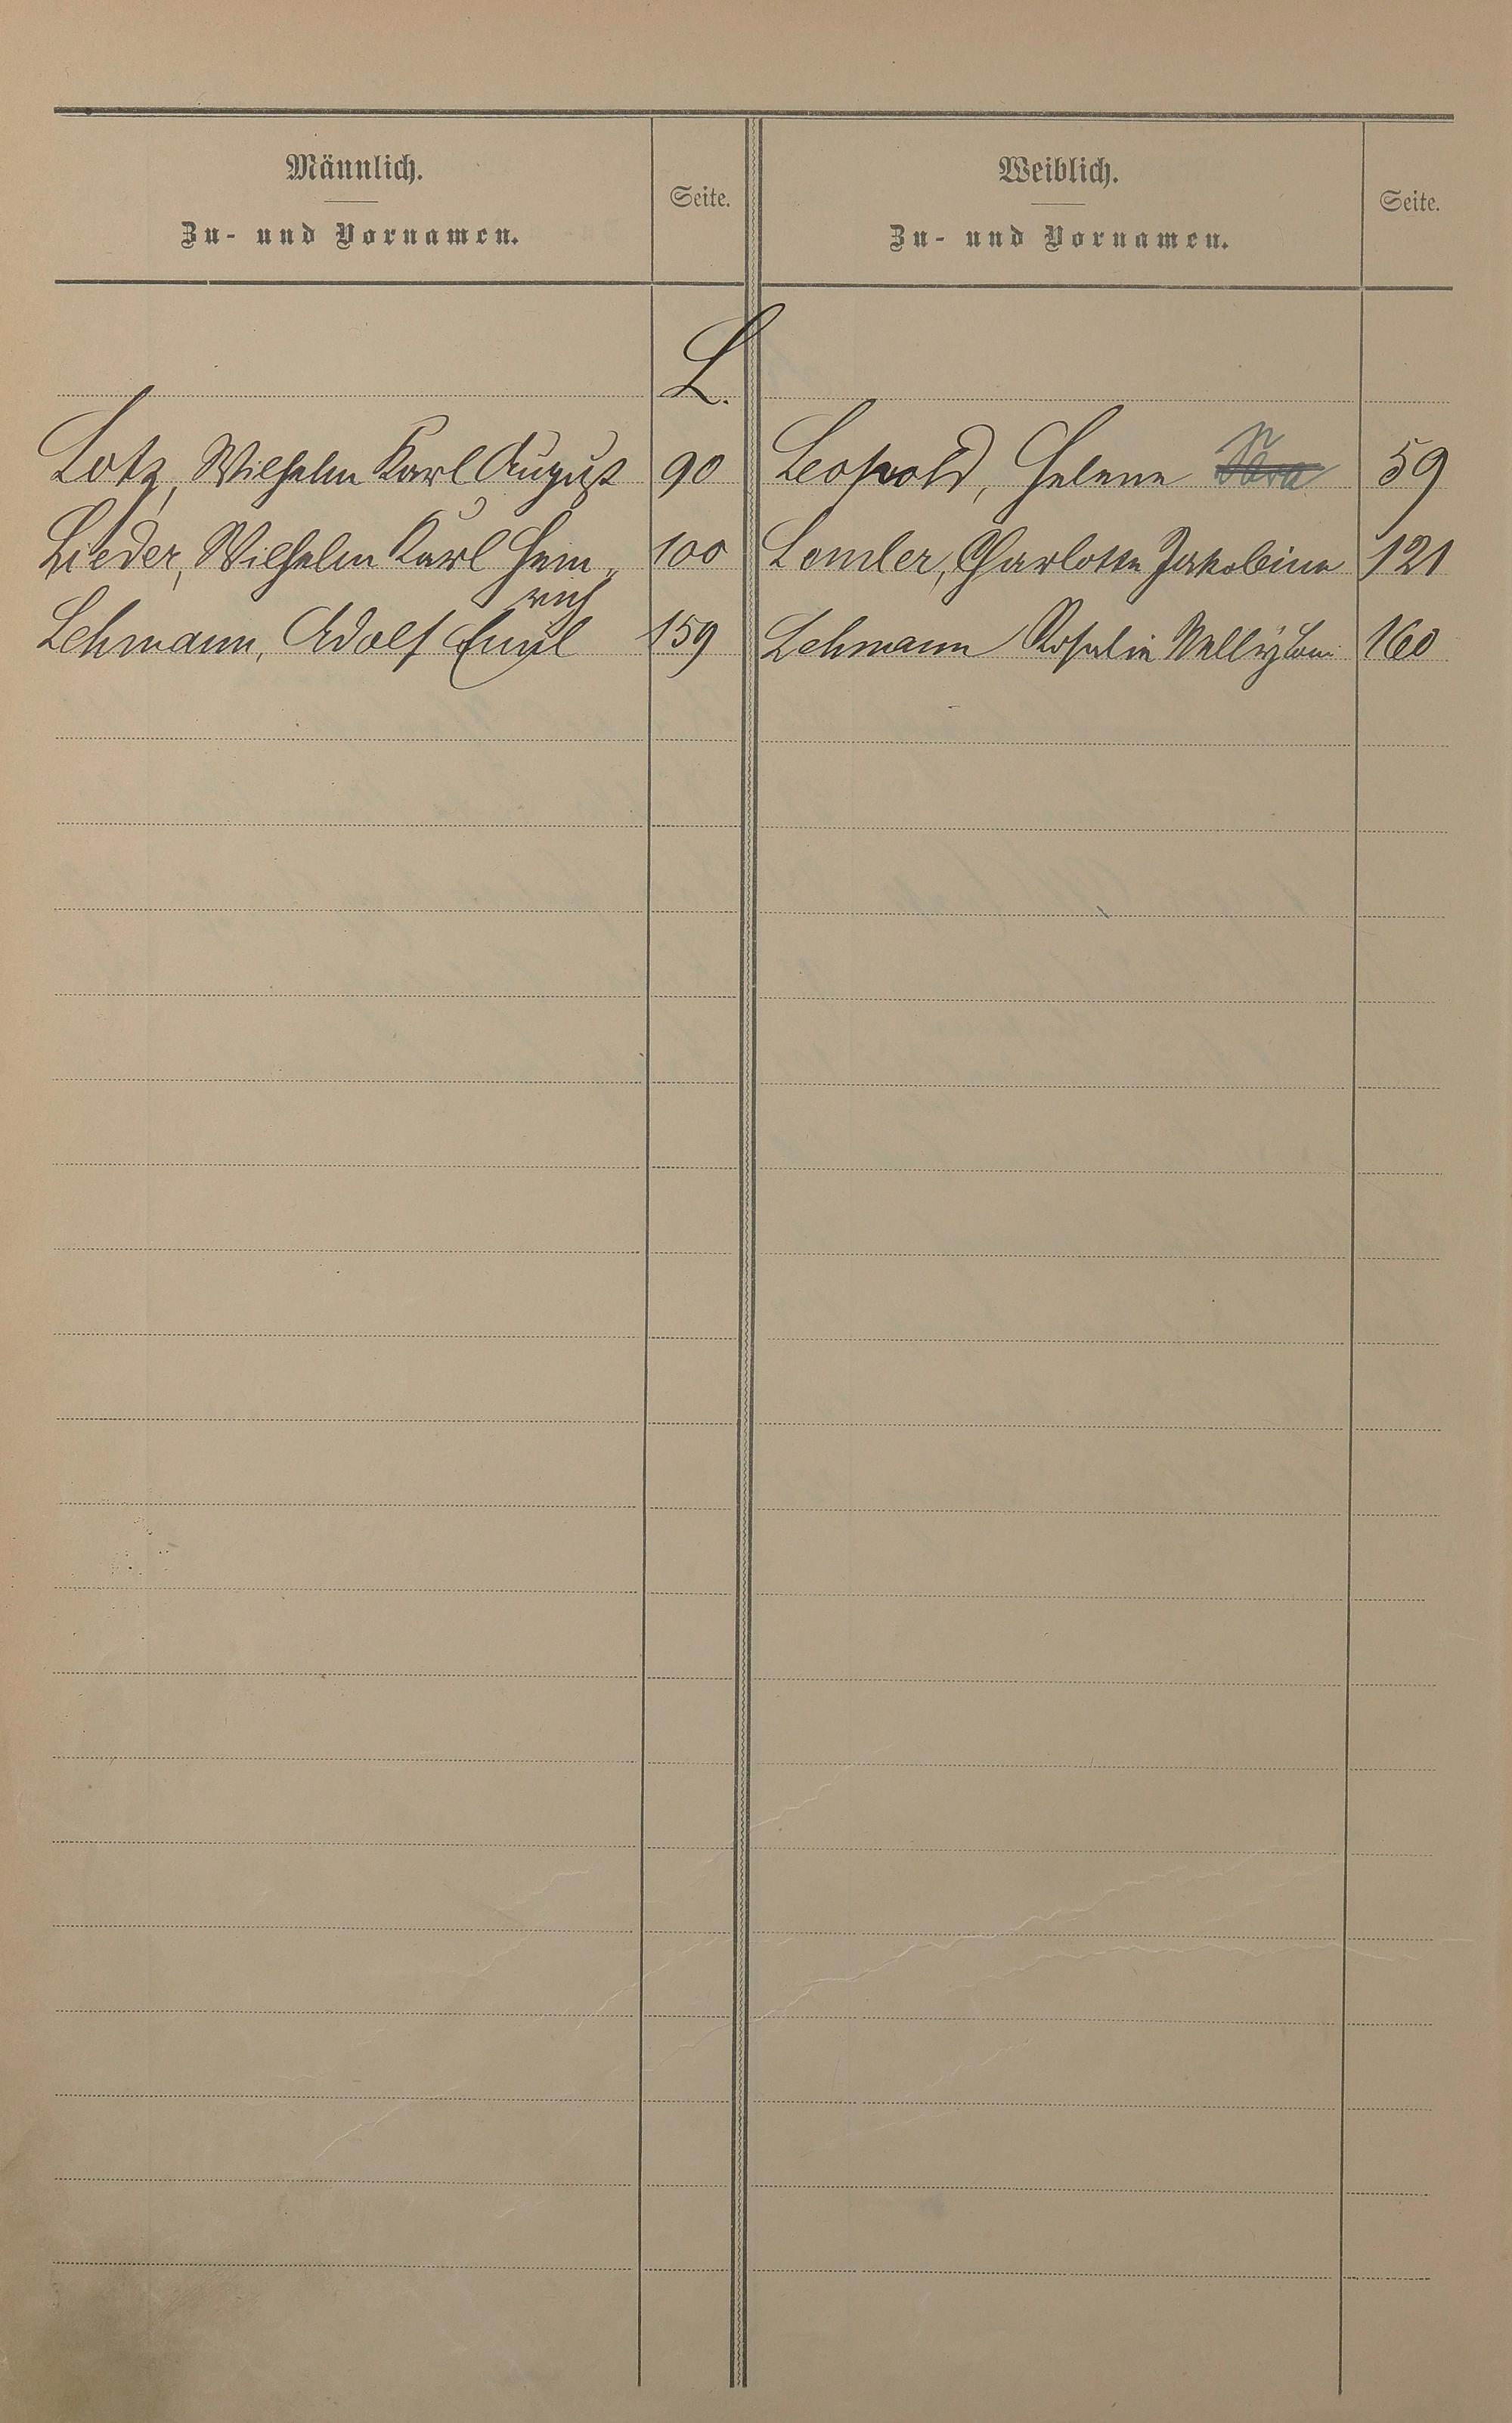 Männlich.
Zu- und Vornamen.
Seite.
Weiblich.
Zu- und Vornamen.
Seite.
L.
Lotz, Wilhelm Karl August 90 Leopold, Helene 59
Lieder, Wilhelm Karl Hein- 100 Lemler, Charlotte Jakobine 121
rich
Lehmann, Adolf Emil 159 Lehmann Rosalie Nelly 160